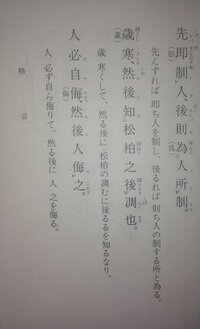 先即制人、後則為人所制。
(即) (為)
先んずれば 即ち人を制し、後るれば 則ち人の制する所と為る。
歳寒、然後知松柏之後凋也。
(歳)
歳 寒くして、然る後に 松柏の凋むに後るるを知るなり。
人必自侮、然後人侮之。
(侮)
人 必ず自ら侮りて、然る後に 人 之を侮る。
格言